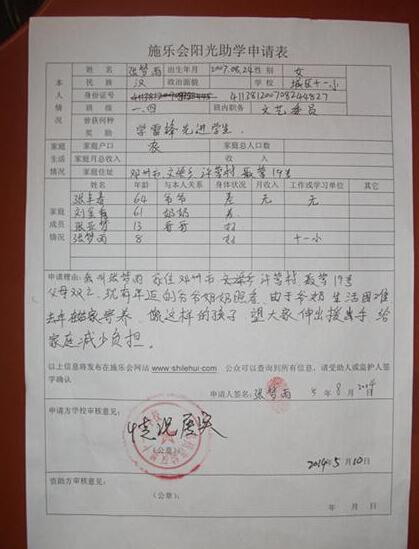 施乐会阳光助学申请表
本人情况
姓名 张梦雨 出生年月 2007.08.24 性别 女
民族 汉 政治面貌 学校 城区十一小
身份证号 411381200708244827
班级 一.四 班内职务 文艺委员
曾获何种奖励 学雷锋先进学生.
家庭生活情况
家庭户口 农 家庭总人口数
家庭月总收入
家庭住址 邓州市 文渠乡 许营村 聂营19号
家庭成员情况
姓名 年龄 与本人关系 身体状况 月收入 工作或学习单位 其它
64 爷爷 差 无 无
61 奶奶 差
13 哥哥 好
张梦雨 8 好 十一小
申请理由: 我叫张梦雨 家住邓州市文渠乡许营村聂营19号
父母双亡, 现有年迈的爷爷奶奶照看 由于爷奶生活困难
像这样的孩子 望大家伸出援助手 给
家庭减少负担.
以上信息将发布在施乐会网站 www.shilehui.com 公众可以查询到所有信息,请受助人或监护人签
字确认
申请人签名: 张梦雨 5 月 8 日 2014
申请方学校审核意见:
情况属实
(公章):
2014年5月10日
资助方审核意见:
(公章): 年 月 日